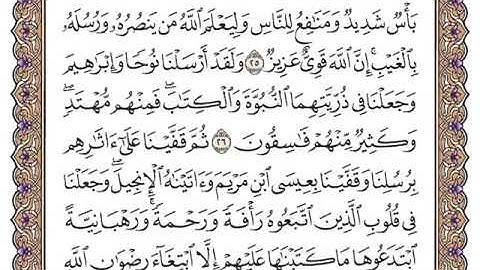 بَأۡسٞ شَدِيدٞ وَمَنَٰفِعُ لِلنَّاسِ وَلِيَعۡلَمَ ٱللَّهُ مَن يَنصُرُهُۥ وَرُسُلَهُۥ
بِٱلۡغَيۡبِۚ إِنَّ ٱللَّهَ قَوِيٌّ عَزِيزٞ ٢٥ وَلَقَدۡ أَرۡسَلۡنَا نُوحٗا وَإِبۡرَٰهِيمَ
وَجَعَلۡنَا فِي ذُرِّيَّتِهِمَا ٱلنُّبُوَّةَ وَٱلۡكِتَٰبَۖ فَمِنۡهُم مُّهۡتَدٖۖ
وَكَثِيرٞ مِّنۡهُمۡ فَٰسِقُونَ ٢٦ ثُمَّ قَفَّيۡنَا عَلَىٰٓ ءَاثَٰرِهِم
بِرُسُلِنَا وَقَفَّيۡنَا بِعِيسَى ٱبۡنِ مَرۡيَمَ وَءَاتَيۡنَٰهُ ٱلۡإِنجِيلَۖ وَجَعَلۡنَا
فِي قُلُوبِ ٱلَّذِينَ ٱتَّبَعُوهُ رَأۡفَةٗ وَرَحۡمَةٗۚ وَرَهۡبَانِيَّةً
ٱبۡتَدَعُوهَا مَا كَتَبۡنَٰهَا عَلَيۡهِمۡ إِلَّا ٱبۡتِغَآءَ رِضۡوَٰنِ ٱللَّهِ